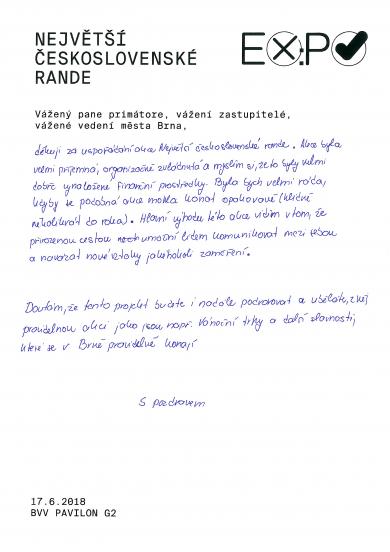 NEJVĚTŠÍ
ČESKOSLOVENSKÉ
RANDE
EXPO
Vážený pane primátore, vážení zastupitelé,
vážené vedení města Brna,
děkuji za uspořádání akce Největší československé rande. Akce byla
velmi příjemná, organizačně zvládnutá a myslím si, že to byly velmi
dobře vynaložené finanční prostředky. Byla bych velmi ráda,
kdyby se podobná akce mohla konat opakovaně (klidně
několikrát do roka). Hlavní výhodu této akce vidím v tom, že
přirozenou cestou lidem komunikovat mezi sebou
a navazat nové vztahy jakéhokoli zaměření.
Doufám, že tento projekt budete i nadále podporovat a uděláte z něj
pravidelnou akci jako jsou např. Vánoční trhy a další slavnosti,
které se v Brně pravidelně konají
S pozdravem
17.6.2018
BVV PAVILON G2